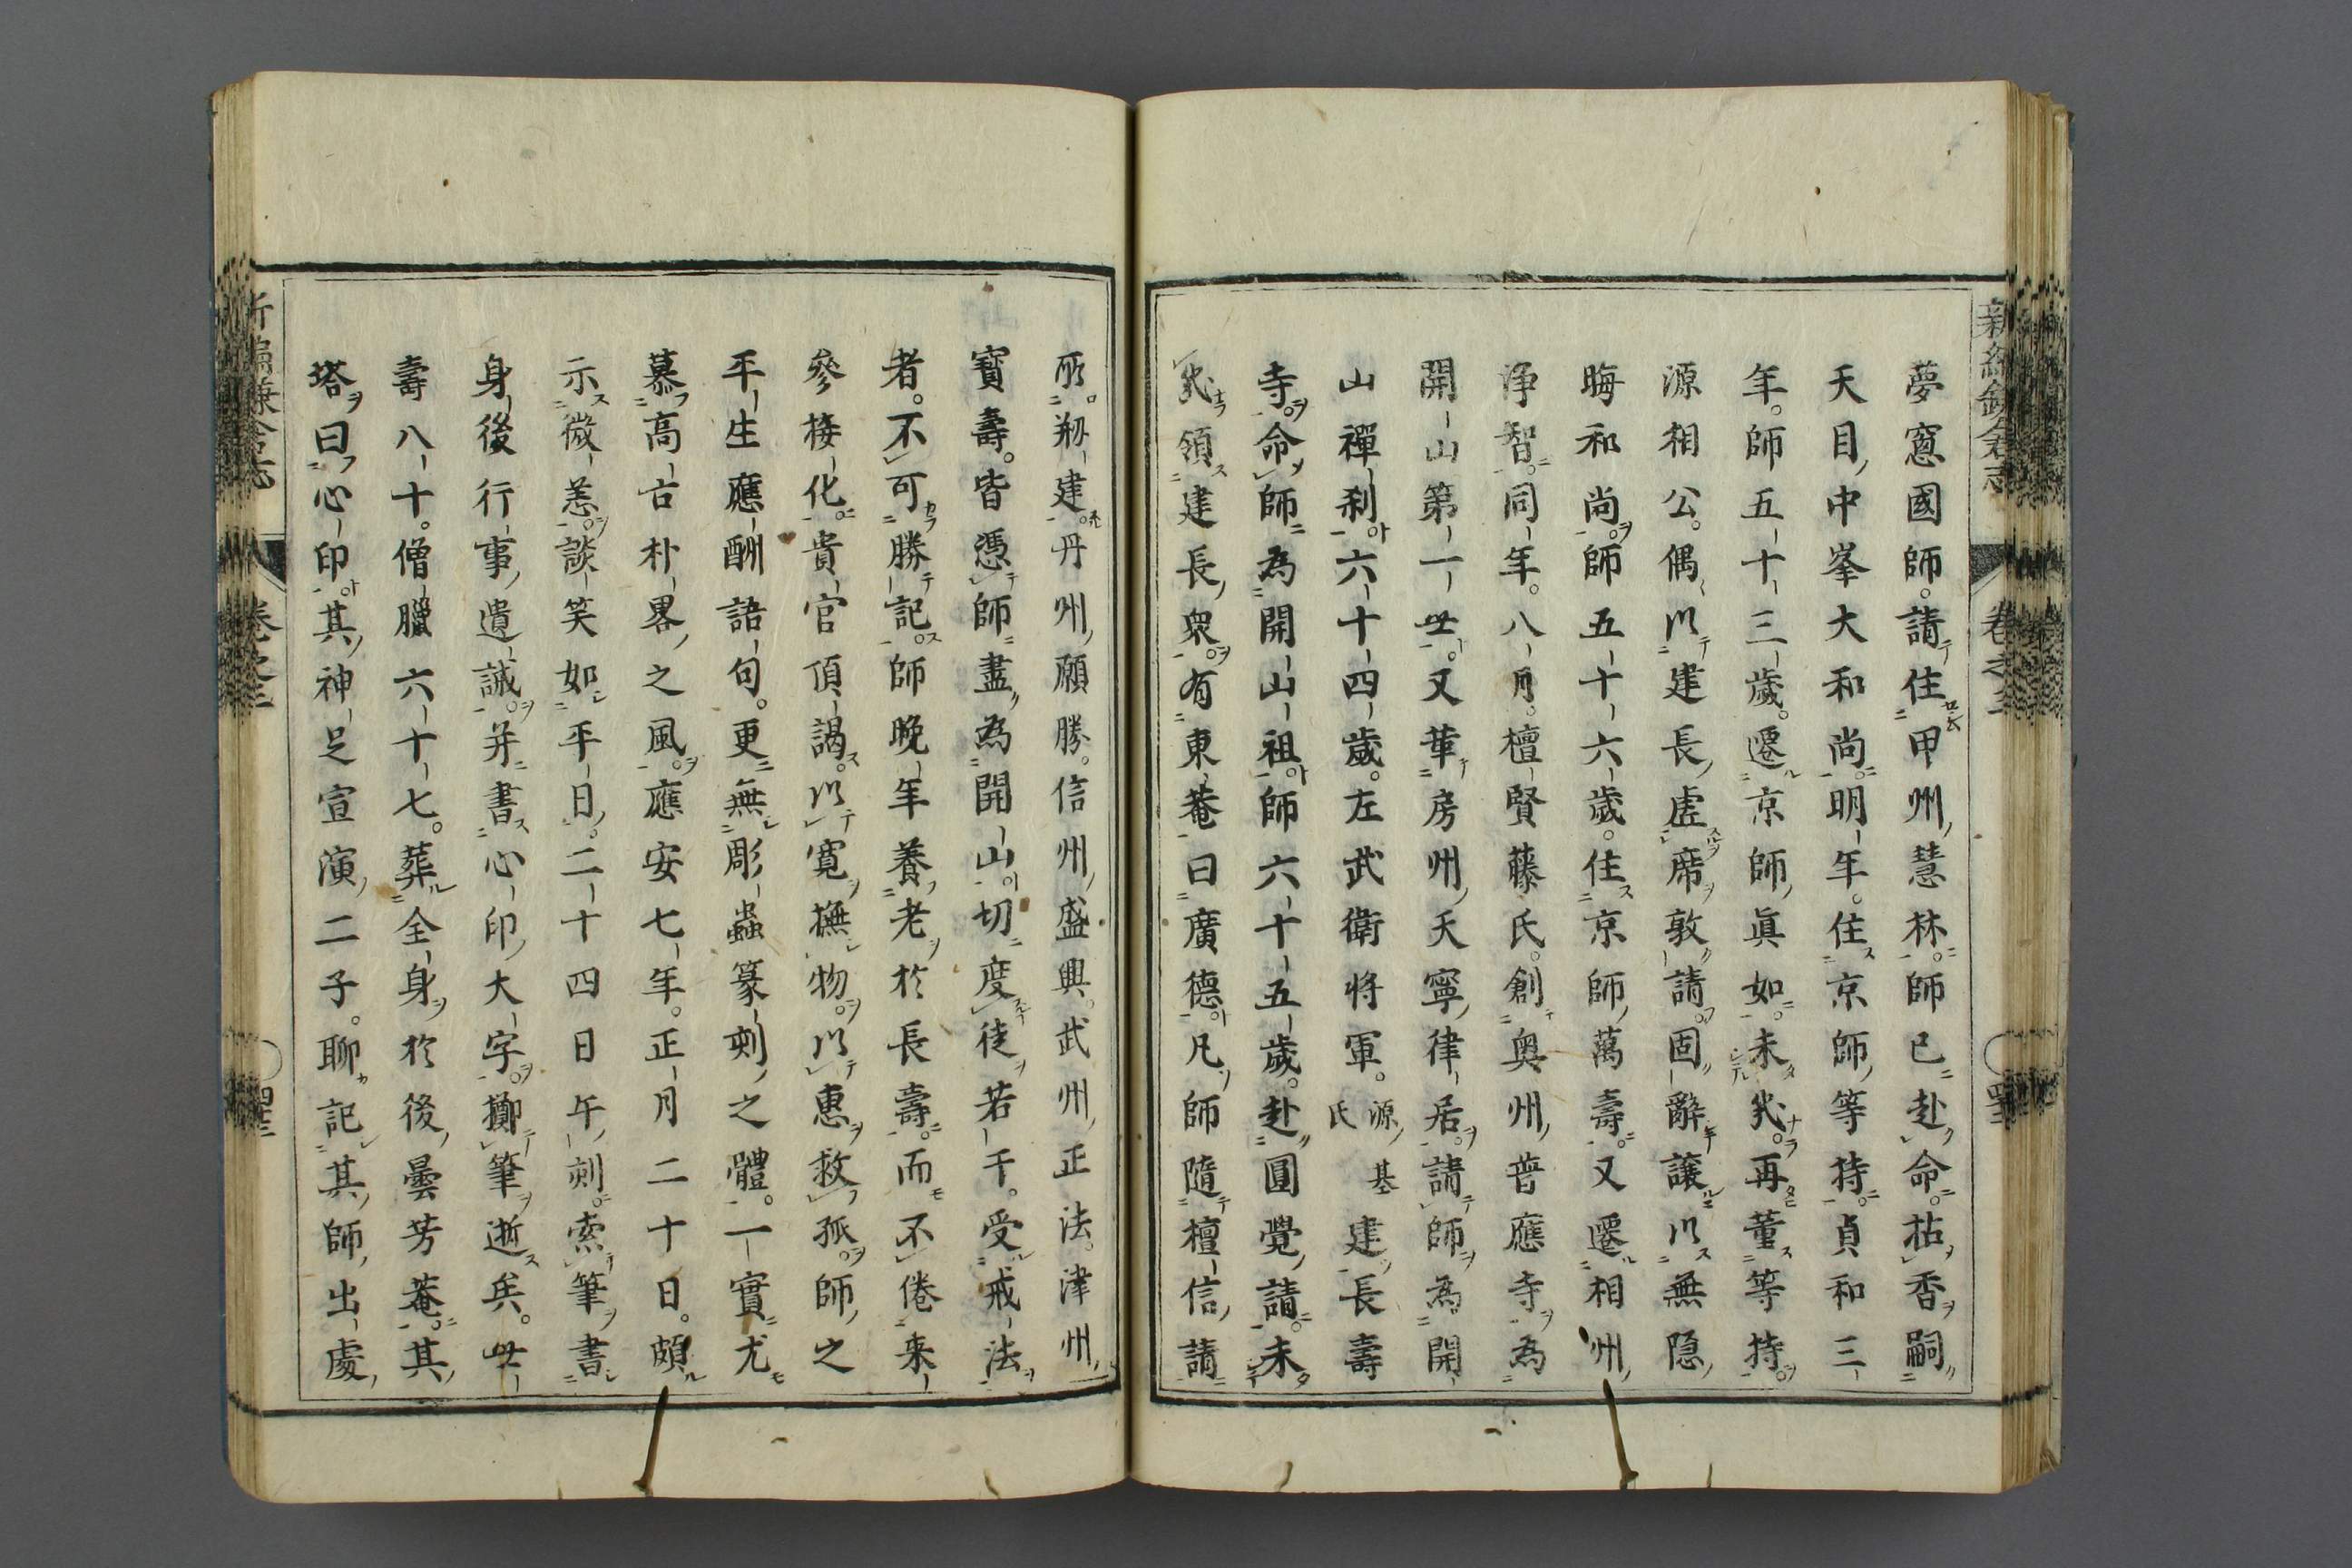 夢窓國師。請住甲州慧林。師已赴命。拈香嗣
天目中峯大和尚。明年。住京師等持。貞和三
年。師五十三歳。遷京師眞如。未幾。再董等持。
源相公。偶以建長虚席敦請。固辭讓以無隠
晦和尚。師五十六歳。住京師萬壽。又遷相州
淨智。同年。八月。檀賢藤氏。創奥州普應寺為
開山第一世。又革房州天寧律居。請師為開
山禪刹。六十四歳。左武衛將軍。源基氏建長壽
寺。命師為開山祖。師六十五歳。赴圓覺請。未
幾領建長衆。有東菴曰廣德。凡師隨檀信請
所。剏建丹州願勝。信州盛興。武州正法。津州
寶壽。皆憑師盡為開山。切度徒若干。受戒法
者。不可勝記。師晩年養老於長壽。而不倦来
參接化。貴官頂謁。以寛撫物。以惠救孤。師之
平生應酬語句。更無彫蟲篆刻之體。一實尤
慕高古朴畧之風。應安七年。正月二十日。頗
示微恙。談笑如平日。二十四日午刻。索筆書
身後行事遺誡。并書心印大字。擲筆逝矣。世
壽八十。僧臘六十七。葬全身於後曇芳菴。其
塔曰心印。其神足宣演二子。聊記其師出處
新編鎌倉志
卷之三
新編鎌倉志
卷之三